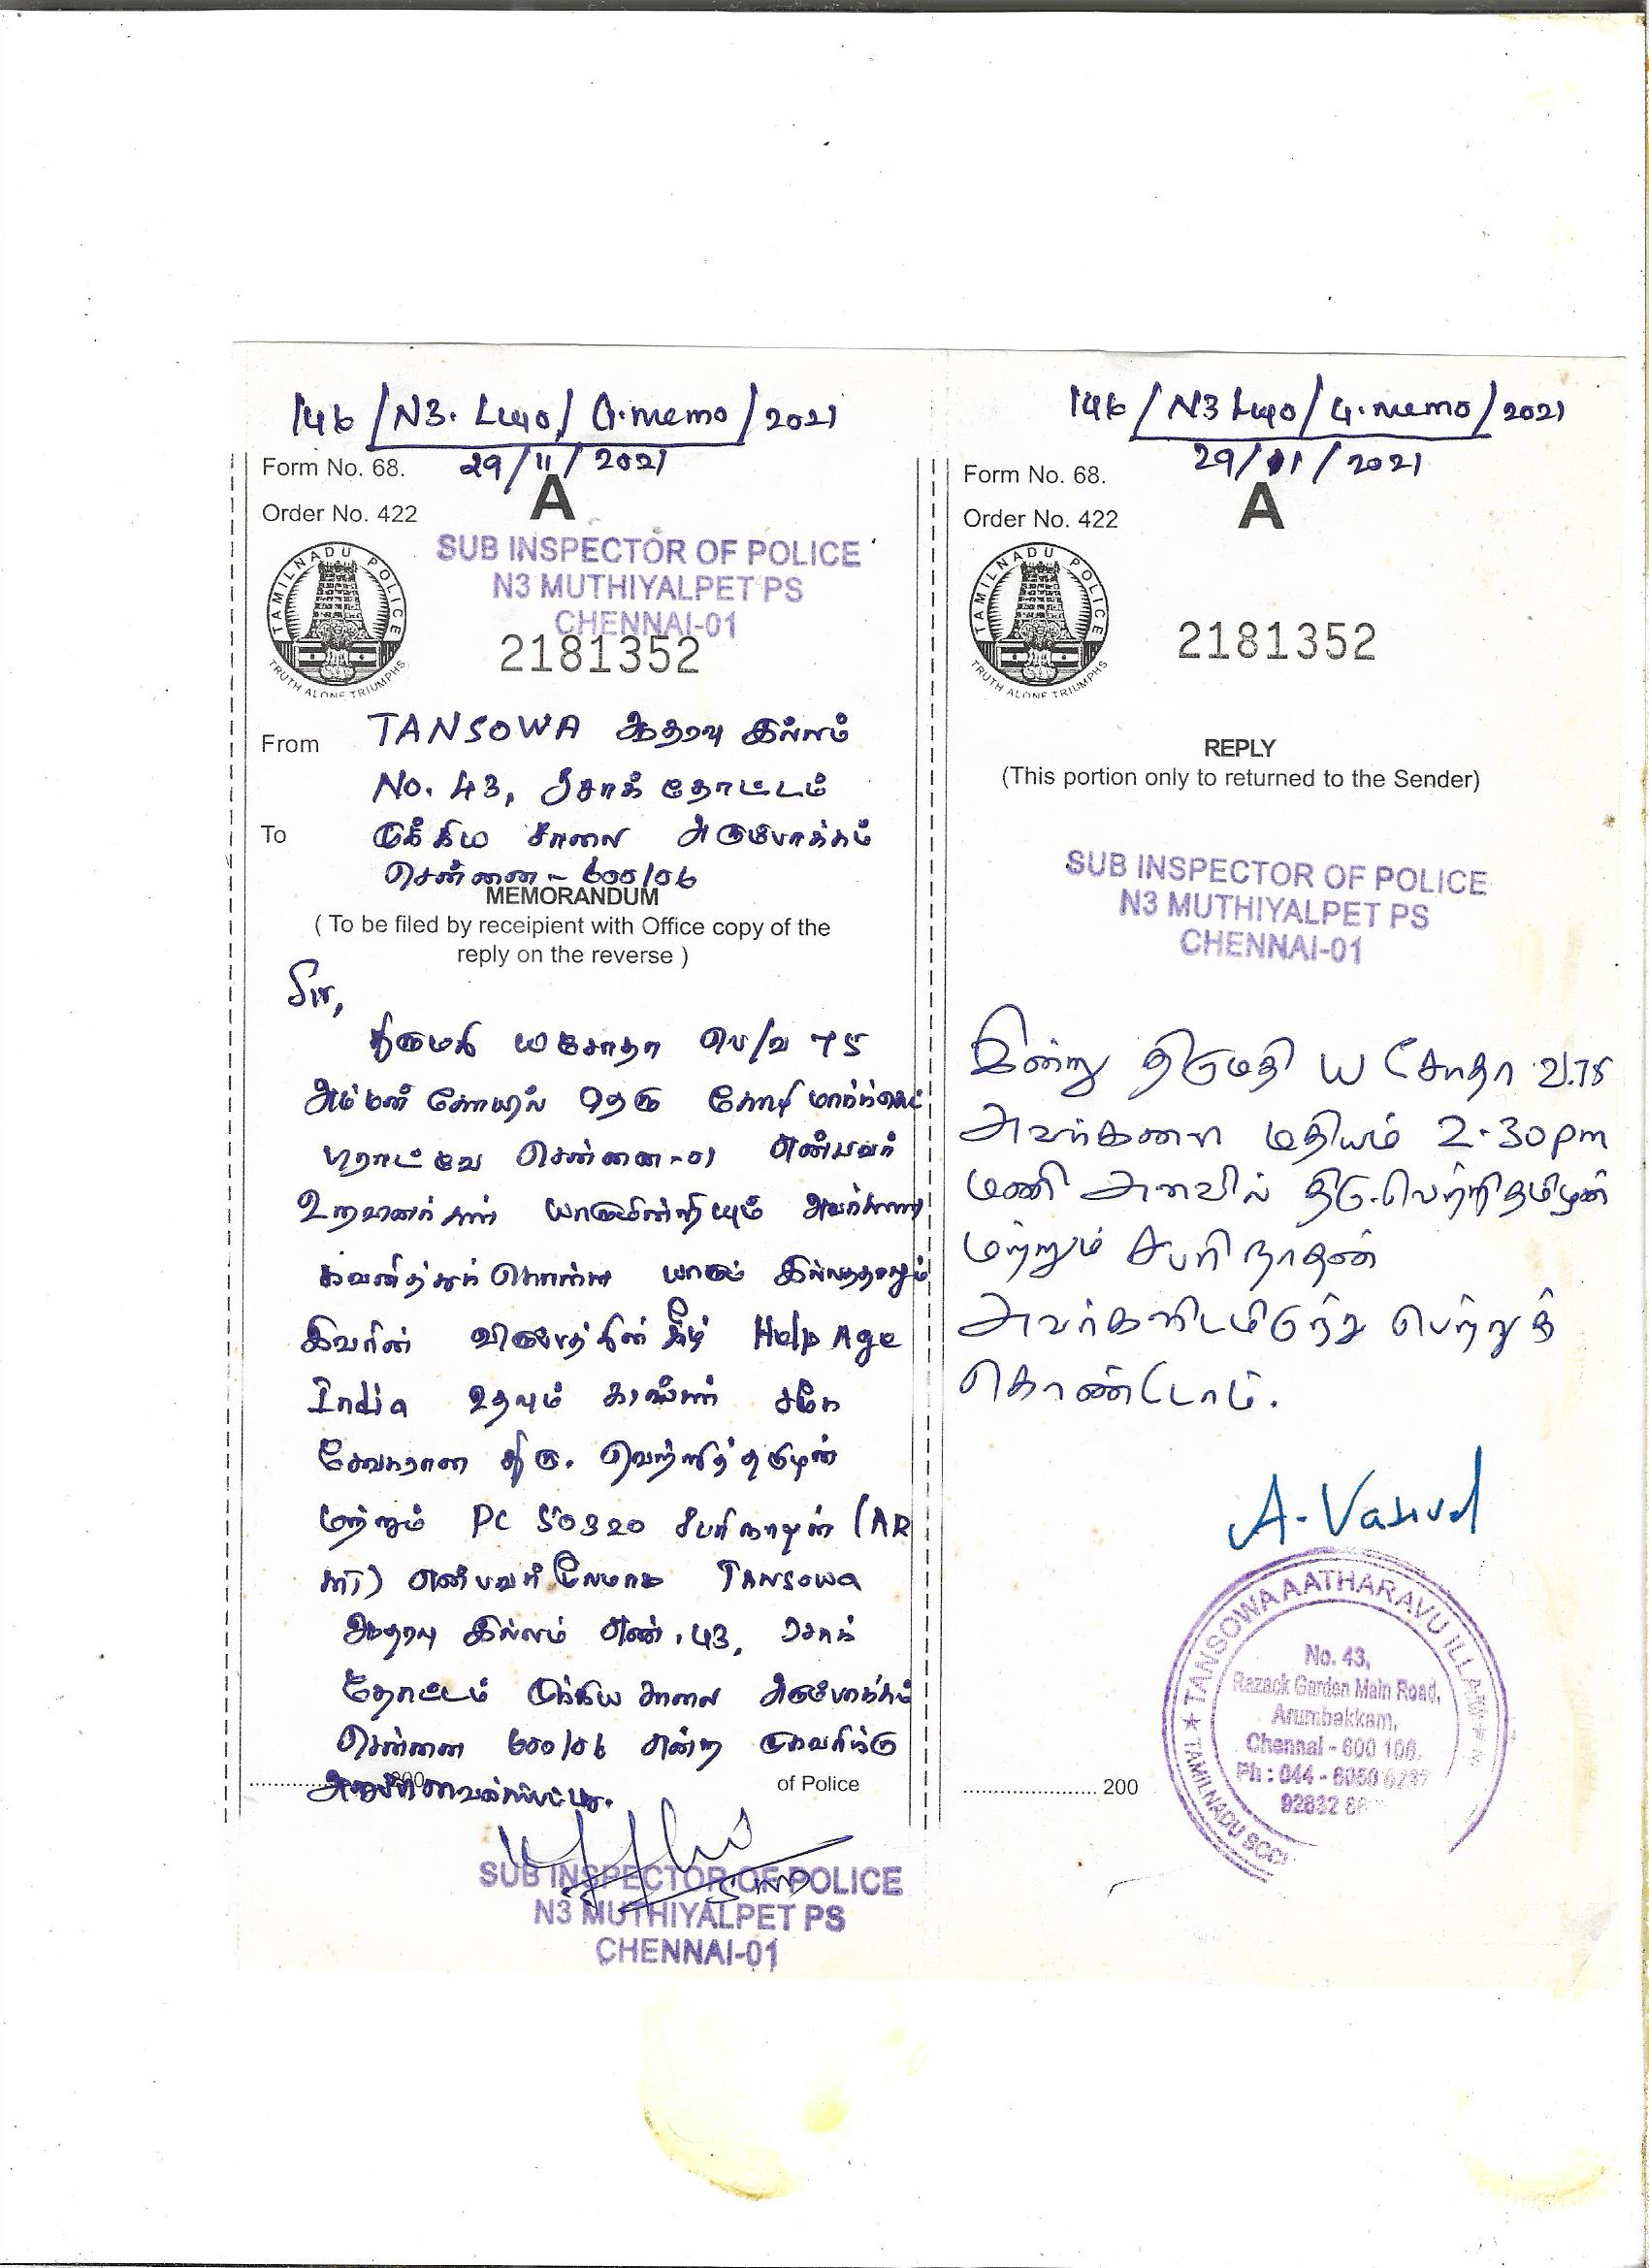 146/N3. L&O/G.memo/2021
29/11/2021
Form No. 68.
A
Order No. 422
SUB INSPECTOR OF POLICE
N3 MUTHIYALPET PS
CHENNAI-01
TAMILNADU POLICE
TRUTH ALONE TRIUMPHS
2181352
From TANSOWA ஆதரவு இல்லம்
No. 43, ரசாக் தோட்டம்
To முக்கிய சாலை அரும்பாக்கம்
சென்னை - 600106
MEMORANDUM
( To be filed by receipient with Office copy of the
reply on the reverse )
Sir,
திருமதி யசோதா பெ/வ 75
அம்மன் கோயில் தெரு கோழி மார்க்கெட்
சென்னை-01 என்பவர்
உறவினர்கள் யாருமின்றியும் அவர்களை
கவனித்துக் கொள்ள யாரும் இல்லாததாலும்
இவரின் விருப்பத்தின் கீழ் Help Age
India உதவும் காவலர்
சேவகரான திரு. வெற்றித்தமிழன்
மற்றும் PC 50320 சபரிநாதன் (AR
என்பவர் மூலமாக TANSOWA
ஆதரவு இல்லம் எண். 43, ரசாக்
தோட்டம் முக்கிய சாலை அரும்பாக்கம்
சென்னை 600106 என்ற முகவரிக்கு
அனுப்பிவைக்கப்பட்டது.
200
of Police
SUB INSPECTOR OF POLICE
N3 MUTHIYALPET PS
CHENNAI-01
146/N3 L&O/G.memo/2021
29/11/2021
Form No. 68.
A
Order No. 422
TAMILNADU POLICE
TRUTH ALONE TRIUMPHS
2181352
REPLY
(This portion only to returned to the Sender)
SUB INSPECTOR OF POLICE
N3 MUTHIYALPET PS
CHENNAI-01
இன்று திருமதி யசோதா வ.75
அவர்களை மதியம் 2.30pm
மணி அளவில் திரு.வெற்றிதமிழன்
மற்றும் சபரிநாதன்
அவர்களிடமிருந்து பெற்றுக்
கொண்டோம்.
TANSOWA AATHARAVU ILLAM
No. 43,
Razack Garden Main Road,
Arumbakkam,
Chennai - 600 106.
Ph : 044 -
TAMILNADU
200